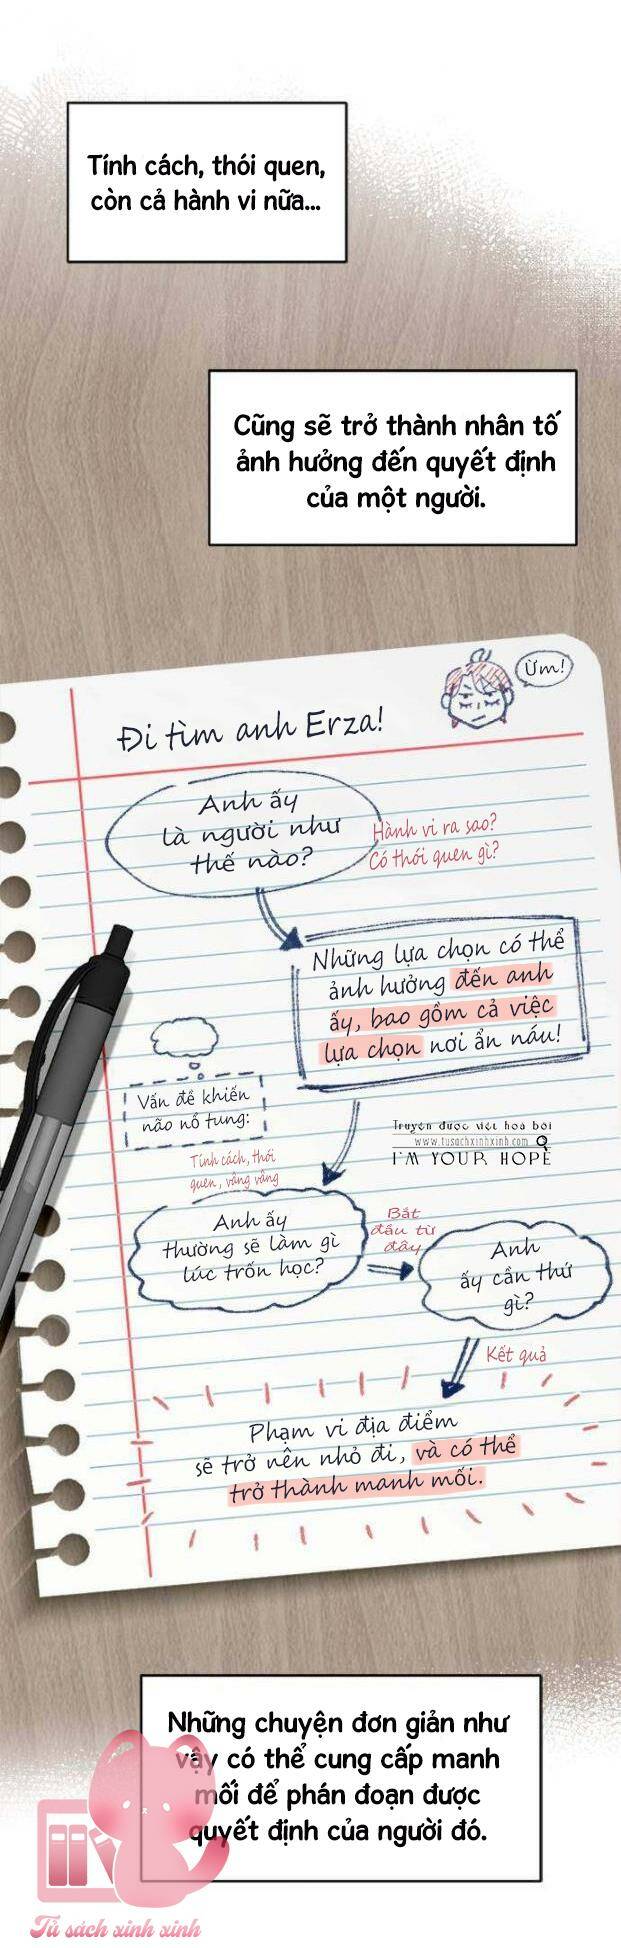 Tính cách, thói quen,
còn cả hành vi nữa...
Cũng sẽ trở thành nhân tố
ảnh hưởng đến quyết định
của một người.
Ừm!
Đi tìm anh Erza!
Anh ấy
là người như
thế nào?
Hành vi ra sao?
Có thói quen gì?
Những lựa chọn có thể
ảnh hưởng đến anh
ấy, bao gồm cả việc
lựa chọn nơi ẩn náu!
Vấn đề khiến
não nổ tung:
Truyện được việt hoá bởi
www.tusachxinhxinh.com
I'M YOUR HOPE
Tính cách, thói
quen, vâng vâng
Anh ấy
thường sẽ làm gì
lúc trốn học?
Bắt
đầu từ
đây
Anh
ấy cần thứ
gì?
Kết quả
Phạm vi địa điểm
sẽ trở nên nhỏ đi, và có thể
trở thành manh mối.
Những chuyện đơn giản như
vậy có thể cung cấp manh
mối để phán đoạn được
quyết định của người đó.
Tủ sách xinh xinh